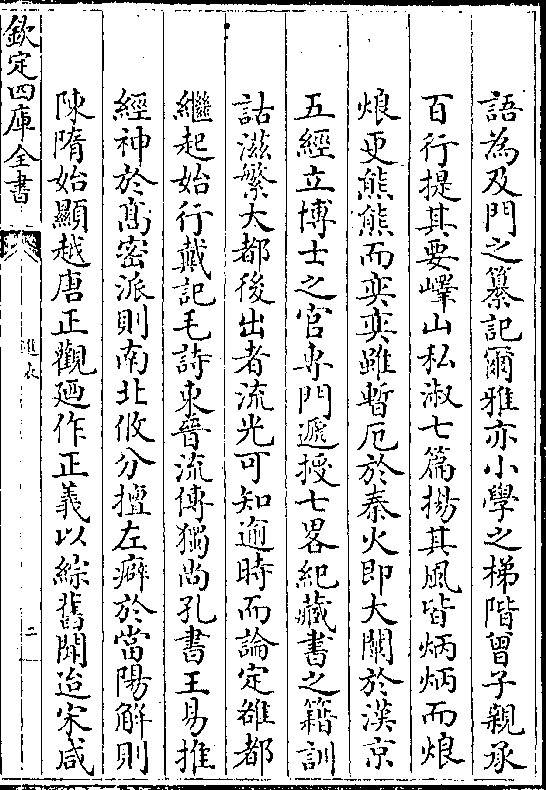 語為及門之纂記爾雅亦小學之梯階曾子親承
百行提其要嶧山私淑七篇揚其風皆炳炳而烺
烺更熊熊而奕奕雖暫厄於秦火即大闡於漢京
五經立博士之官専門遞授七畧紀藏書之籍訓
詁滋繁大都後出者流光可知逾時而論定雒都
繼起始行戴記毛詩東晉流傳獨尚孔書王易推
經神於髙密派則南北攸分擅左癖於當陽解則
陳隋始顯越唐正觀廼作正義以綜舊聞迨宋咸
欽定四庫全書
進表
二